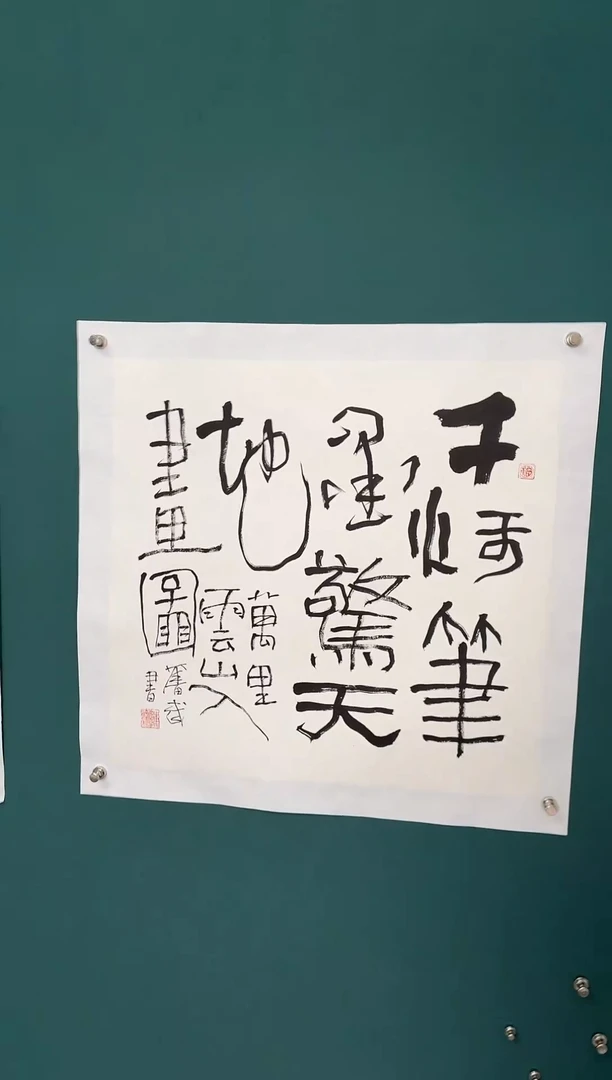 千秋筆
墨驚天
地
萬里
雲山入
畫圖
書